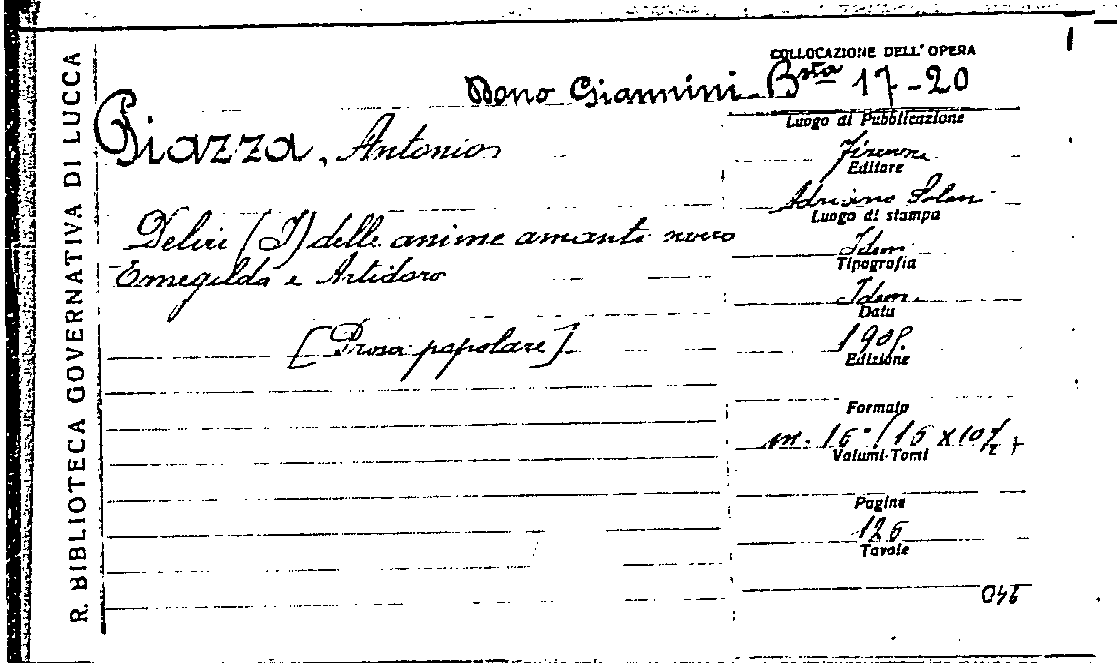 R. BIBLIOTECA GOVERNATIVA DI LUCCA
COLLOCAZIONE DELL'OPERA
Dono Giannini Bsta 17-20
Piazza, Antonio
Deliri (I) delle anime amanti
Emegilda e Artidoro
[Prosa popolare]
Luogo di Pubblicazione
Firenze
Editore
Adriano Salani
Luogo di stampa
Idem
Tipografia
Idem
Data
Edizione
Formato
Volumi-Tomi
Pagine
Tavole